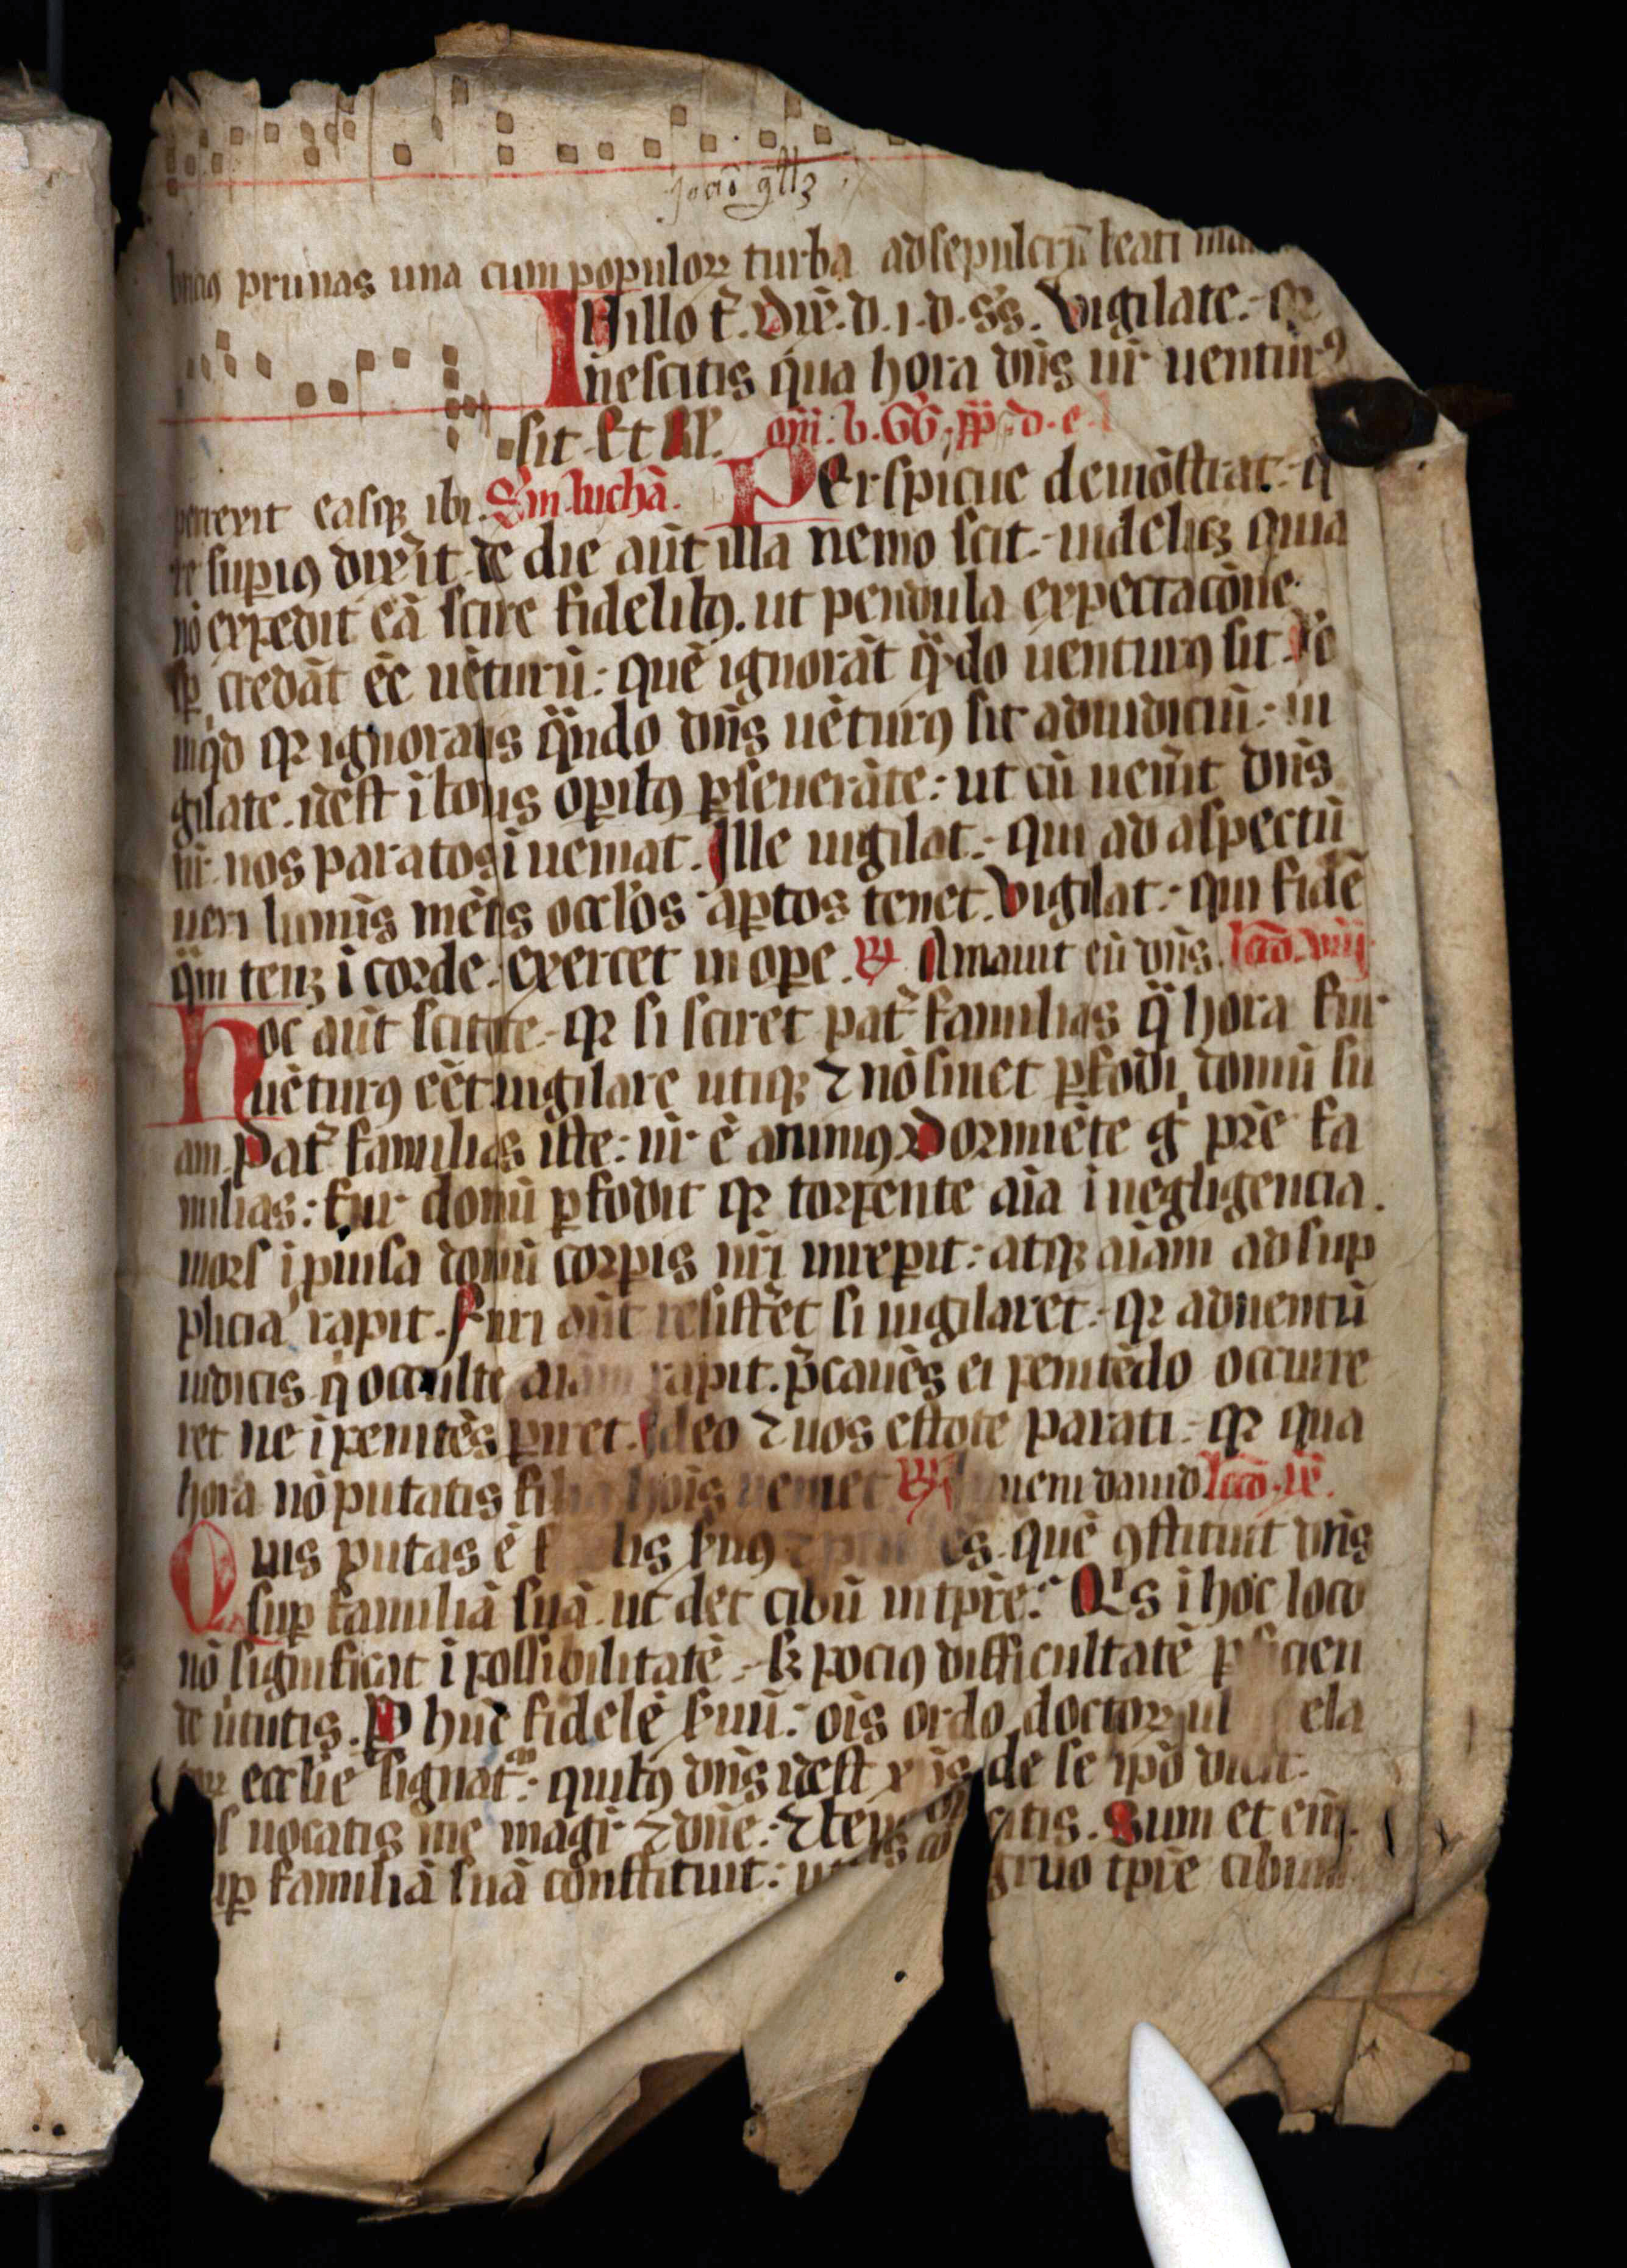 prunas una cum populoꝝ turba ad sepulcrū beati
In illo t̄. Dix̄. d. i. d. ss. Vigilate. qꝛ
nescitis qua hora dn̄s ur̄ uenturꝰ
sit. Et Rl̄. om̄. b. GG. pp. d. e.
perrexit easqꝫ ibi. Sm luchā. Perspicue demōstrat. q̄
supiꝰ dixit. de die aūt illa nemo scit. uidelicꝫ quia
nō expedit eā scire fidelibꝰ. ut pendula expectacōne
sp̄ credāt ēe uēturū: quē ignorāt qn̄do uenturꝰ sit. Iō
inqd qꝛ ignoratis qn̄do dn̄s uēturꝰ sit ad iudiciū: ui
gilate. idest ī boīs opibꝰ pseuerāte: ut cū uen̄it dn̄s
ur̄ nos paratos īueniat. Ille uigilat. qui ad aspectū
ueri luminis mētis occl'os aptos tenet. Vigilat. qui fidē
qm̄ tenꝫ ī corde. exercet in ope. R̄ Amauit eū dn̄s. lcō. viij
Hoc aūt scitote. qꝛ si sciret pat̄ familias q̄ hora fur
uēturꝰ eēt uigilare utiqꝫ ⁊ nō sinet pfodi domū su
am. Pat̄ familias iste: ur̄ ē animꝰ. Dormiēte g̊ pr̄e fa
milias: fur domū pfodit qꝛ torpente aīa ī negligencia.
mors īpuisa domū corpis nr̄i irrepit: atqꝫ aīam ad sup
plicia rapit. Furi aūt resist̄et si uigilaret. qꝛ aduentū
iudicis q̇ occulte aīam rapit. p̄cauēs ei penitēdo occurre
ret ne īpenitēs piret. Ideo ⁊ uos estote parati. qꝛ qua
hora nō putatis hoīs ueniet R̄ Inueni dauid lcō. ix.
Quis putas ē lis s̄uꝰ ⁊ quē ꝯstituit dn̄s
sup familiā suā. ut det cibū in tpr̄e. Qis ī hoc loco
nō significat īpossibilitatē. sꝫ pociꝰ difficultatē pficien
de ūtutis. P huc fidelē s̄uū: oīs ordo doctoꝝ ul ela
eccl'ie signat̄: quibꝰ dn̄s idest x de se ipō dicit.
uocatis me magr̄ ⁊ dn̄e: ⁊ citis. Sum et eīm.
sup familiā suā constituit: gruo tpr̄e cibum